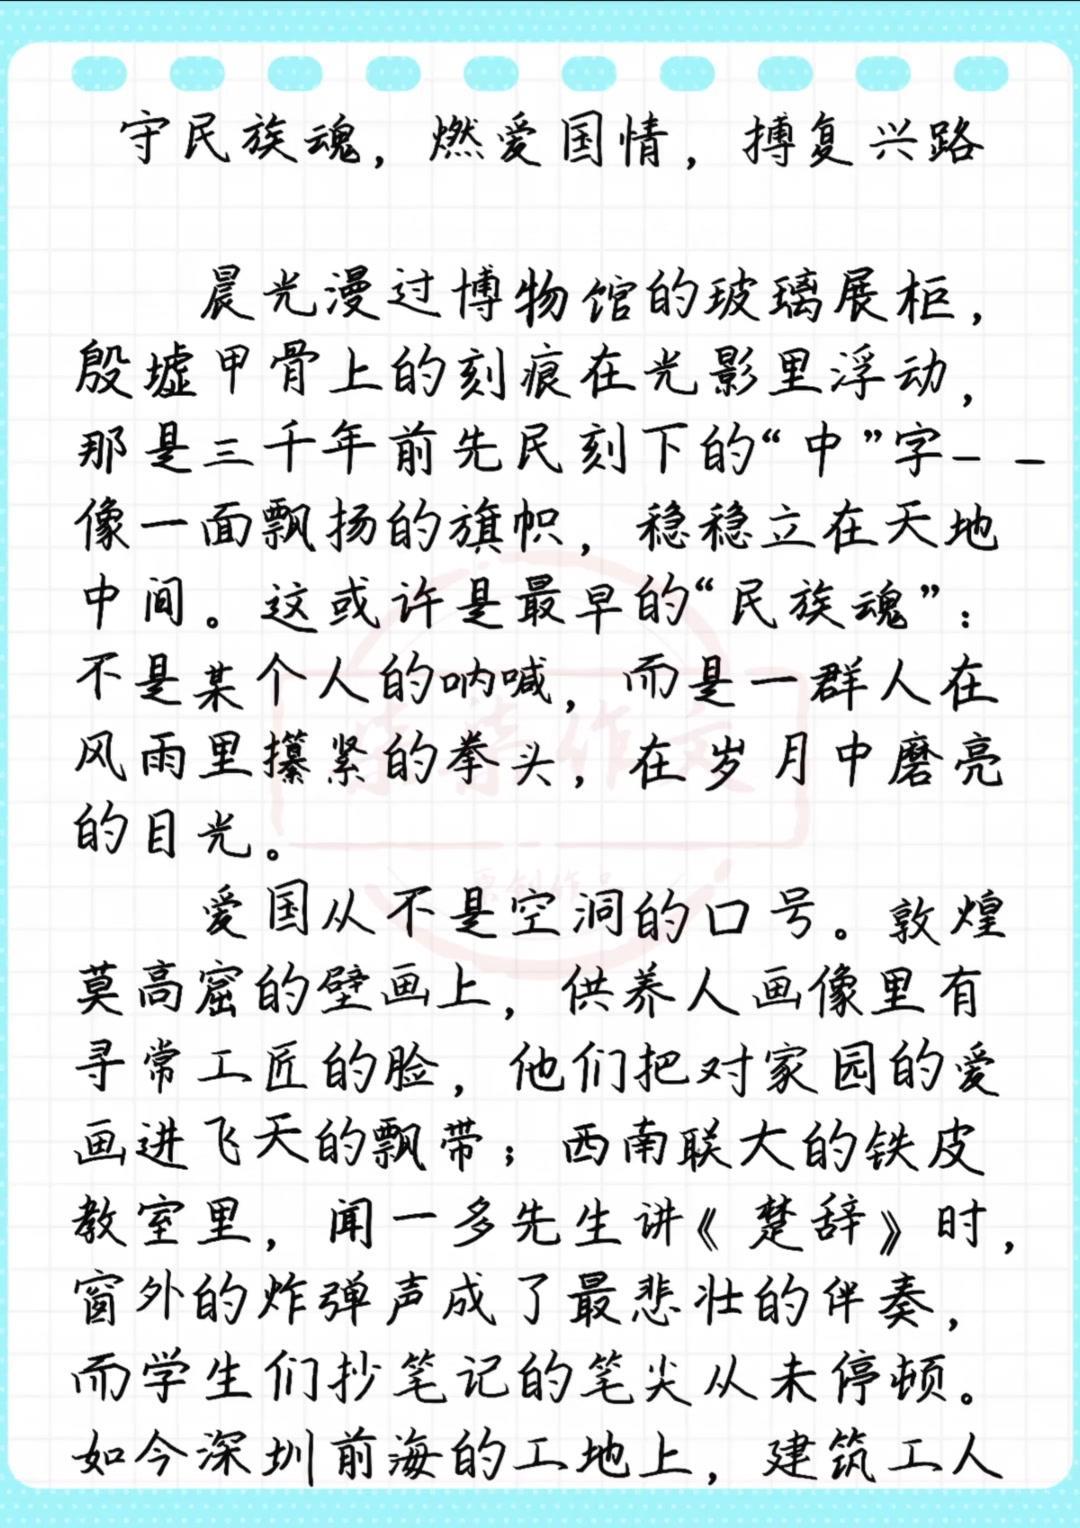 守民族魂，燃爱国情，搏复兴路
晨光漫过博物馆的玻璃展柜，
殷墟甲骨上的刻痕在光影里浮动，
那是三千年前先民刻下的“中”字--
像一面飘扬的旗帜，稳稳立在天地
中间。这或许是最早的“民族魂”：
不是某个人的呐喊，而是一群人在
风雨里攥紧的拳头，在岁月中磨亮
的目光。
爱国从不是空洞的口号。敦煌
莫高窟的壁画上，供养人画像里有
寻常工匠的脸，他们把对家园的爱
画进飞天的飘带；西南联大的铁皮
教室里，闻一多先生讲《楚辞》时，
窗外的炸弹声成了最悲壮的伴奏，
而学生们抄笔记的笔尖从未停顿。
如今深圳前海的工地上，建筑工人